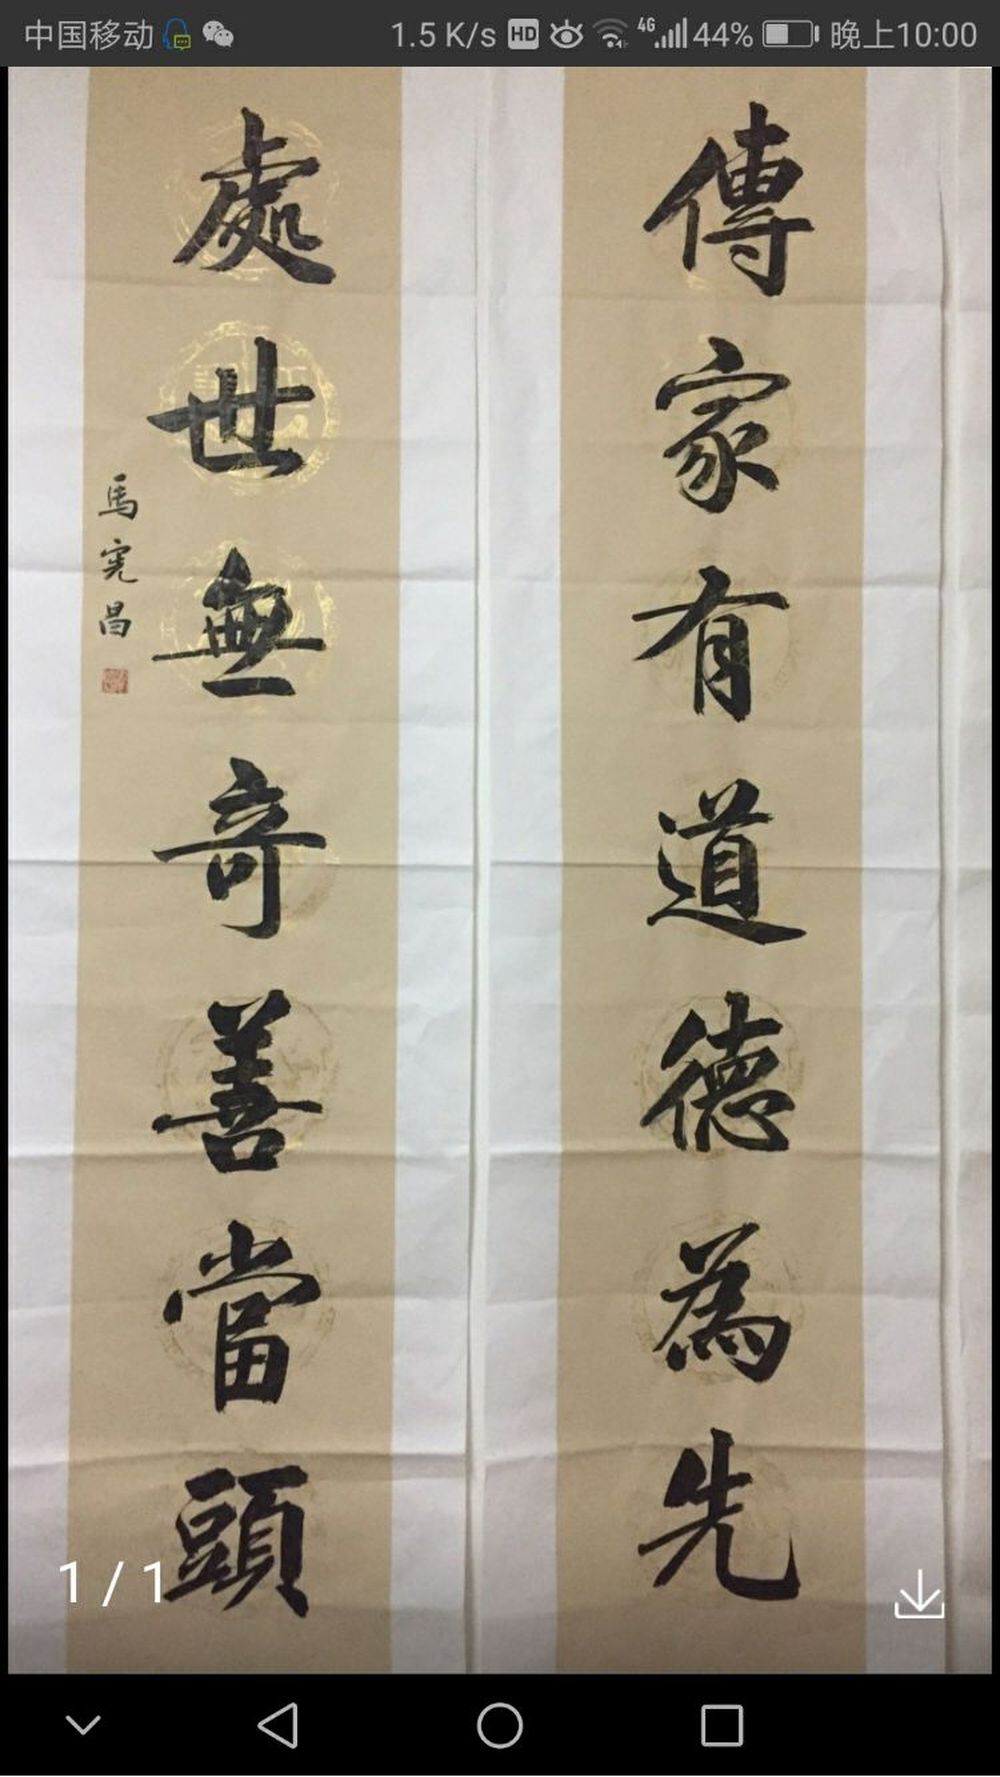 中国移动 1.5 K/s HD 4G 44% 晚上10:00
傳家有道德為先
處世無奇善當頭
馬憲昌
1 / 1